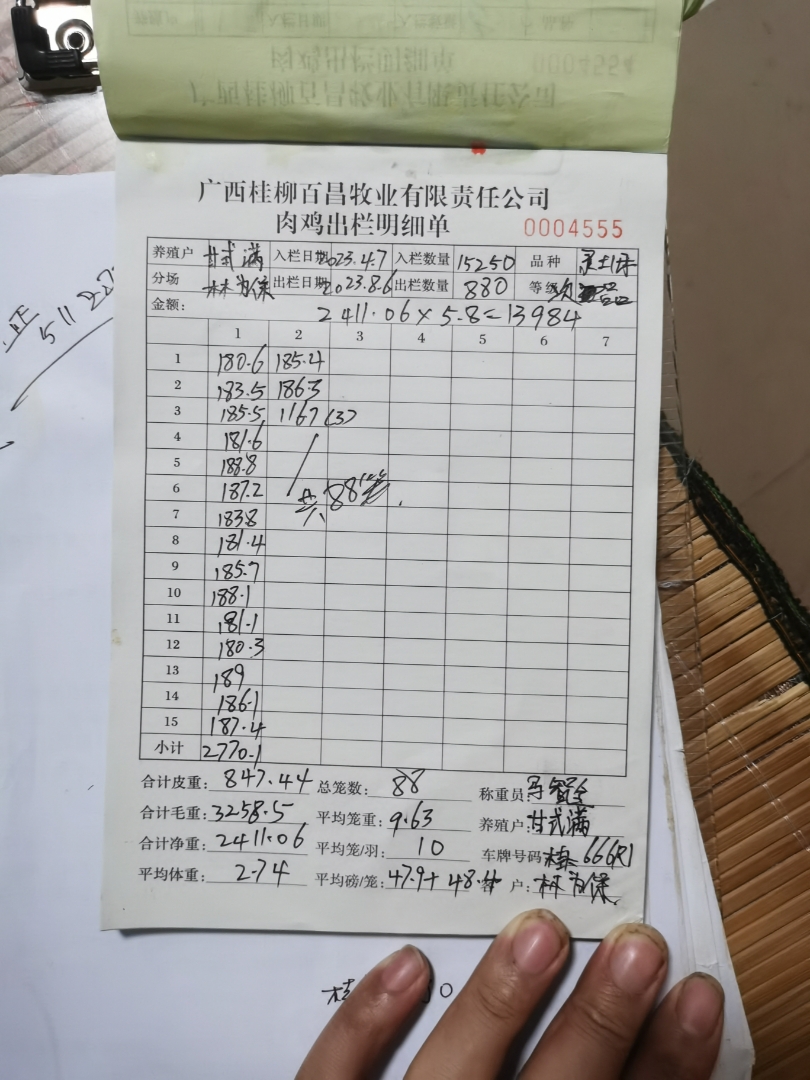 广西桂柳百昌牧业有限责任公司
肉鸡出栏明细单 0004555
养殖户 甘式满 入栏日期 2023.4.7 入栏数量 15250 品种
分场 林为保 出栏日期 2023.8.6 出栏数量 880 等级 次
金额: 2411.06×5.8=13984
1 2 3 4 5 6 7
1 180.6 185.4
2 183.5 186.3
3 185.5 116.7 (3)
4 181.6
5 188.8
6 187.2 共88笼.
7 183.8
8 181.4
9 185.7
10 188.1
11 181.1
12 180.3
13 189
14 186.1
15 187.4
小计 2770.1
合计皮重: 847.44 总笼数: 88 称重员:
合计毛重: 3258.5 平均笼重: 9.63 养殖户: 甘式满
合计净重: 2411.06 平均笼/羽: 10 车牌号码: 666R1
平均体重: 2.74 平均磅/笼: 47.9+48.4 客户: 林为保